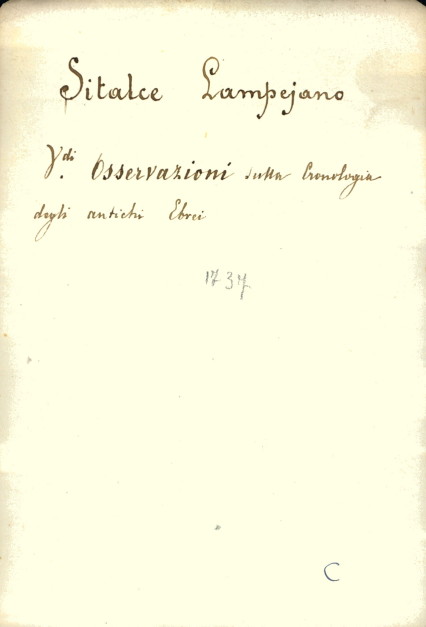 Sitalce Lampejano
V.di Osservazioni sulla Cronologia
degli antichi Ebrei
1737
C